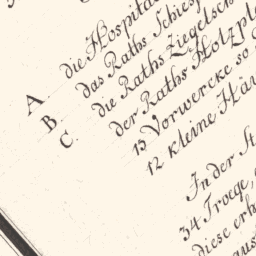 A. die Hospita
B. das Raths Schiesp
C. die Raths Ziegelsch
der Raths Holzpl
13 Vorwercke so
12 kleine Häu
In der St
34 Troege,
diese erb